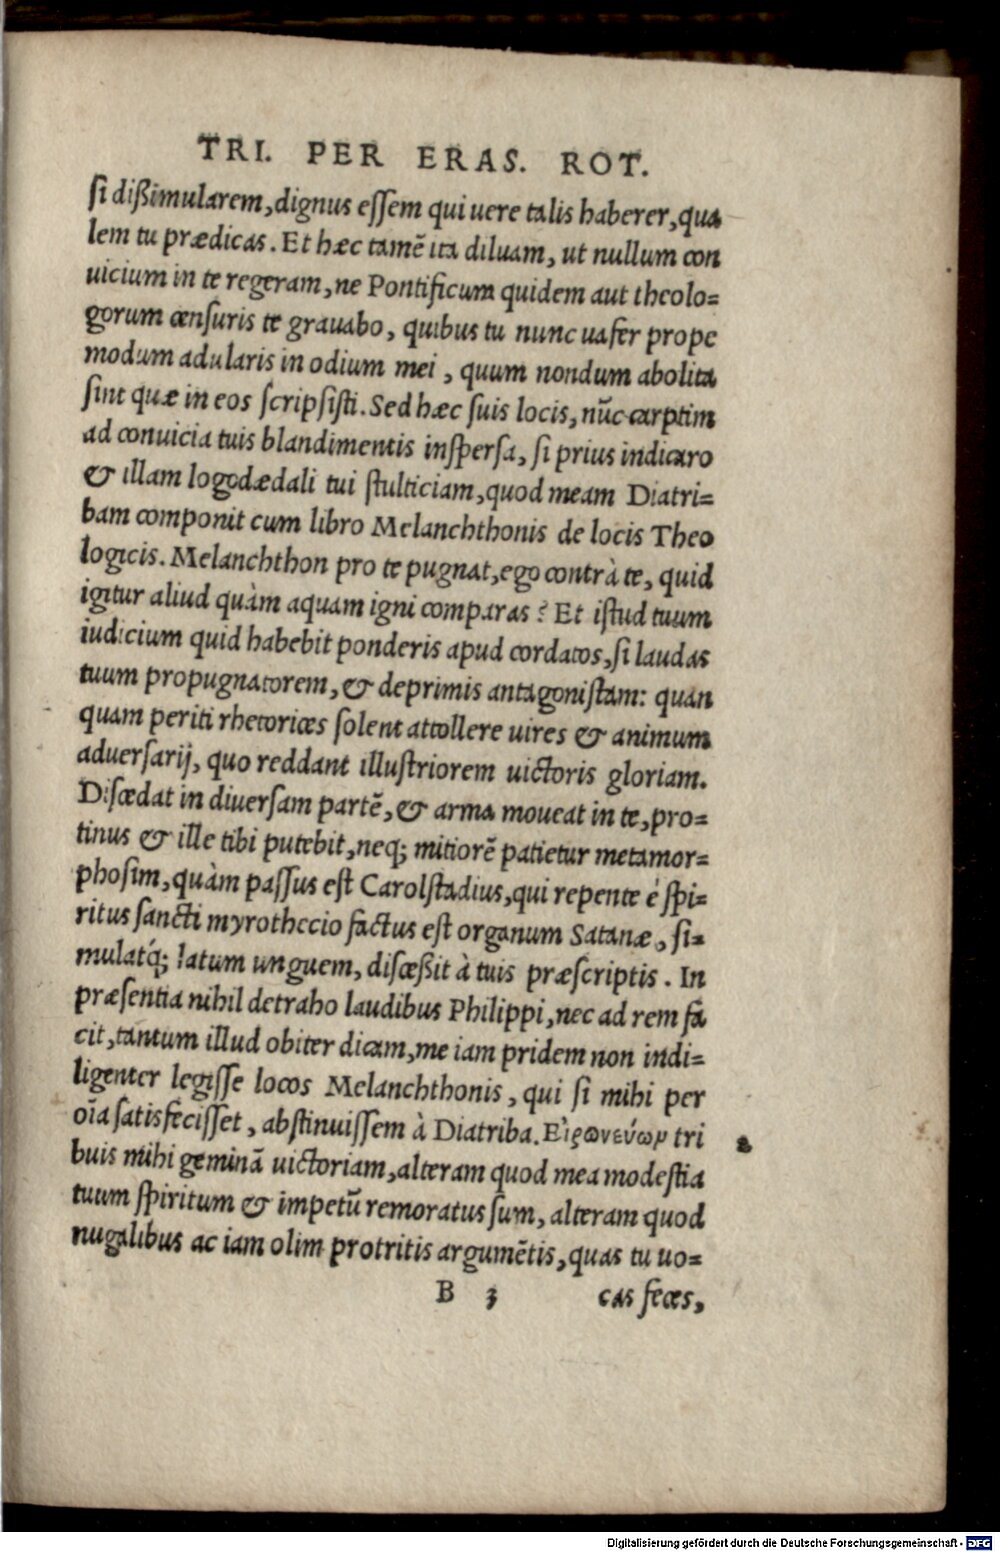 TRI. PER ERAS. ROT.
si dißimularem, dignus essem qui uere talis haberer, qua
lem tu prædicas. Et hæc tamē ita diluam, ut nullum con
uicium in te regeram, ne Pontificum quidem aut theolo=
gorum censuris te grauabo, quibus tu nunc uafer prope
modum adularis in odium mei, quum nondum abolita
sint quæ in eos scripsisti. Sed hæc suis locis, nūc carptim
ad conuicia tuis blandimentis inspersa, si prius indicaro
& illam logodædali tui stulticiam, quod meam Diatri=
bam componit cum libro Melanchthonis de locis Theo
logicis. Melanchthon pro te pugnat, ego contrà te, quid
igitur aliud quàm aquam igni comparas? Et istud tuum
iudicium quid habebit ponderis apud cordatos, si laudas
tuum propugnatorem, & deprimis antagonistam: quan
quam periti rhetorices solent attollere uires & animum
aduersarij, quo reddant illustriorem uictoris gloriam.
Discedat in diuersam partē, & arma moueat in te, pro=
tinus & ille tibi putebit, neq; mitiorē patietur metamor=
phosim, quàm passus est Carolstadius, qui repente è spi=
ritus sancti myrothecio factus est organum Satanæ, si=
mulatq́; latum unguem, disceßit à tuis præscriptis. In
præsentia nihil detraho laudibus Philippi, nec ad rem fa
cit, tantum illud obiter dicam, me iam pridem non indi=
ligenter legisse locos Melanchthonis, qui si mihi per
oīa satisfecisset, abstinuissem à Diatriba. Εἰρωνεύων tri
buis mihi geminā uictoriam, alteram quod mea modestia
tuum spiritum & impetū remoratus sum, alteram quod
nugalibus ac iam olim protritis argumētis, quas tu uo=
B 3 cas feces,
Digitalisierung gefördert durch die Deutsche Forschungsgemeinschaft - DFG